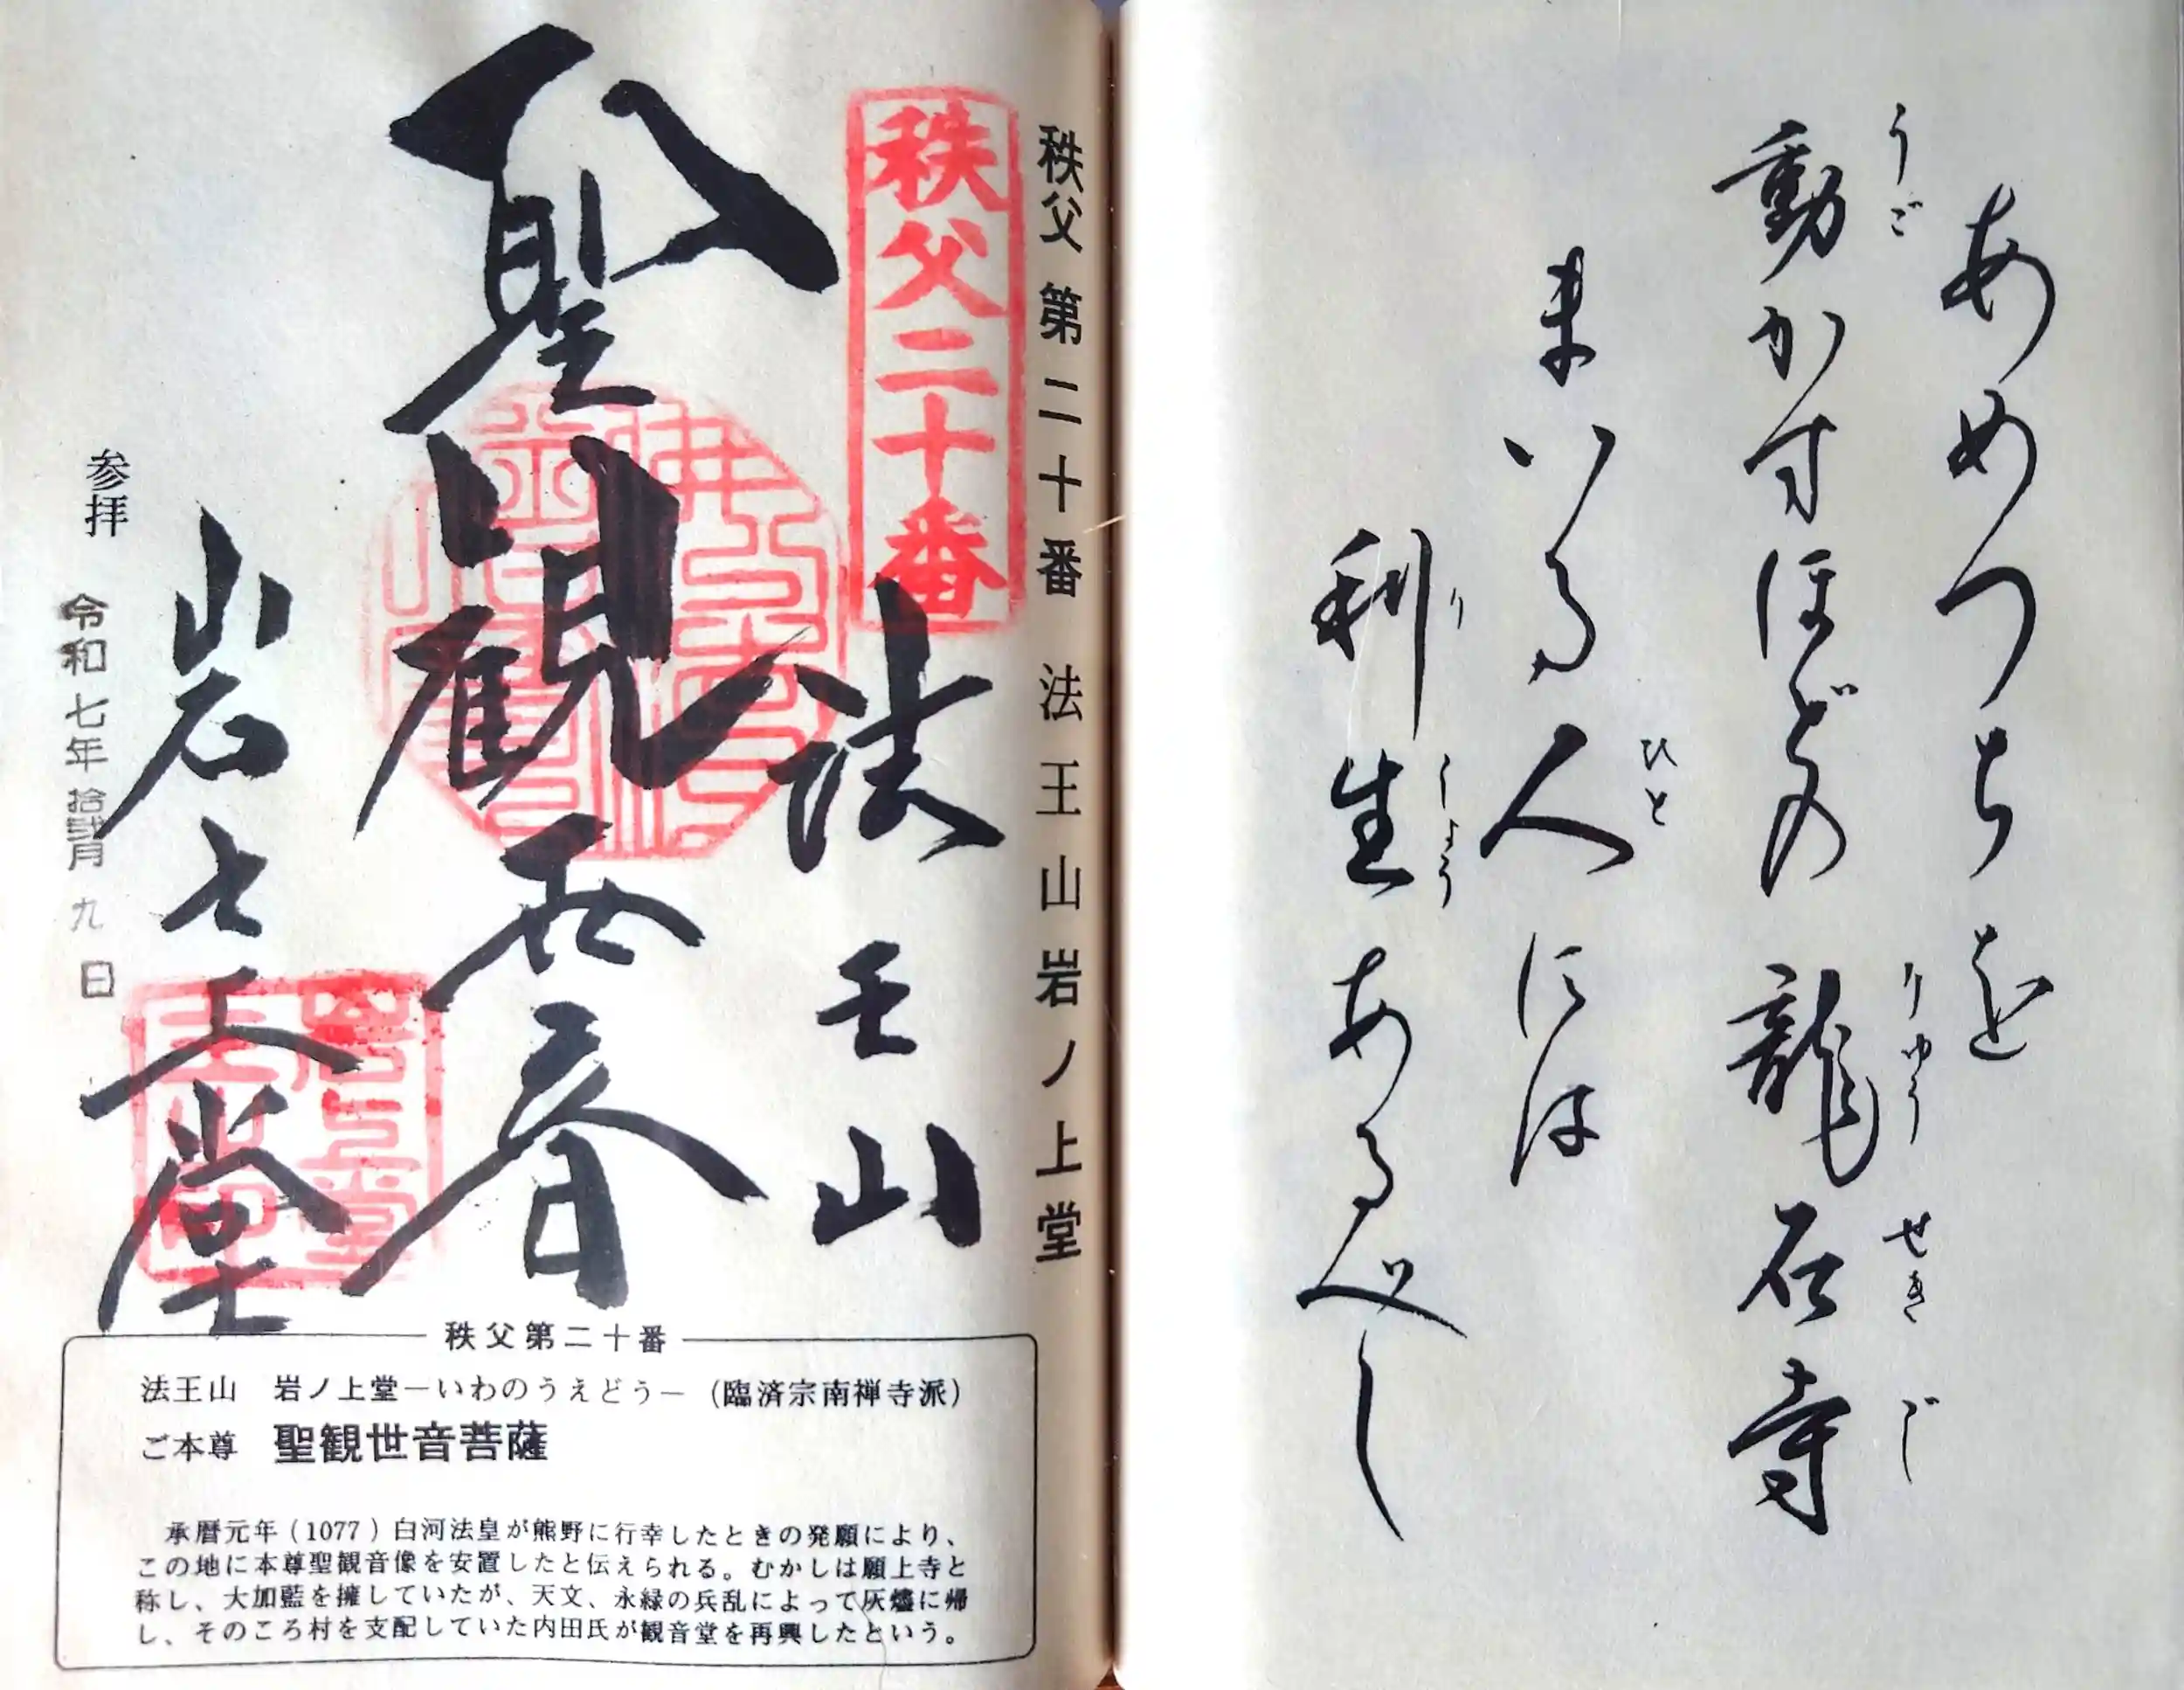 あめつちを
動かすほどの龍石寺
うご
りゅうせきじ
まいる人には
ひと
利生あるべし
り
しょう
秩父第二十番 法王山岩ノ上堂
秩父二十番
法王山
聖観世音
岩上堂
参拝 令和七年拾弐月九日
秩父第二十番
法王山 岩ノ上堂－いわのうえどう－(臨済宗南禅寺派)
ご本尊 聖観世音菩薩
承暦元年(1077)白河法皇が熊野に行幸したときの発願により、
この地に本尊聖観音像を安置したと伝えられる。むかしは願上寺と
称し、大加藍を擁していたが、天文、永緑の兵乱によって灰燼に帰
し、そのころ村を支配していた内田氏が観音堂を再興したという。